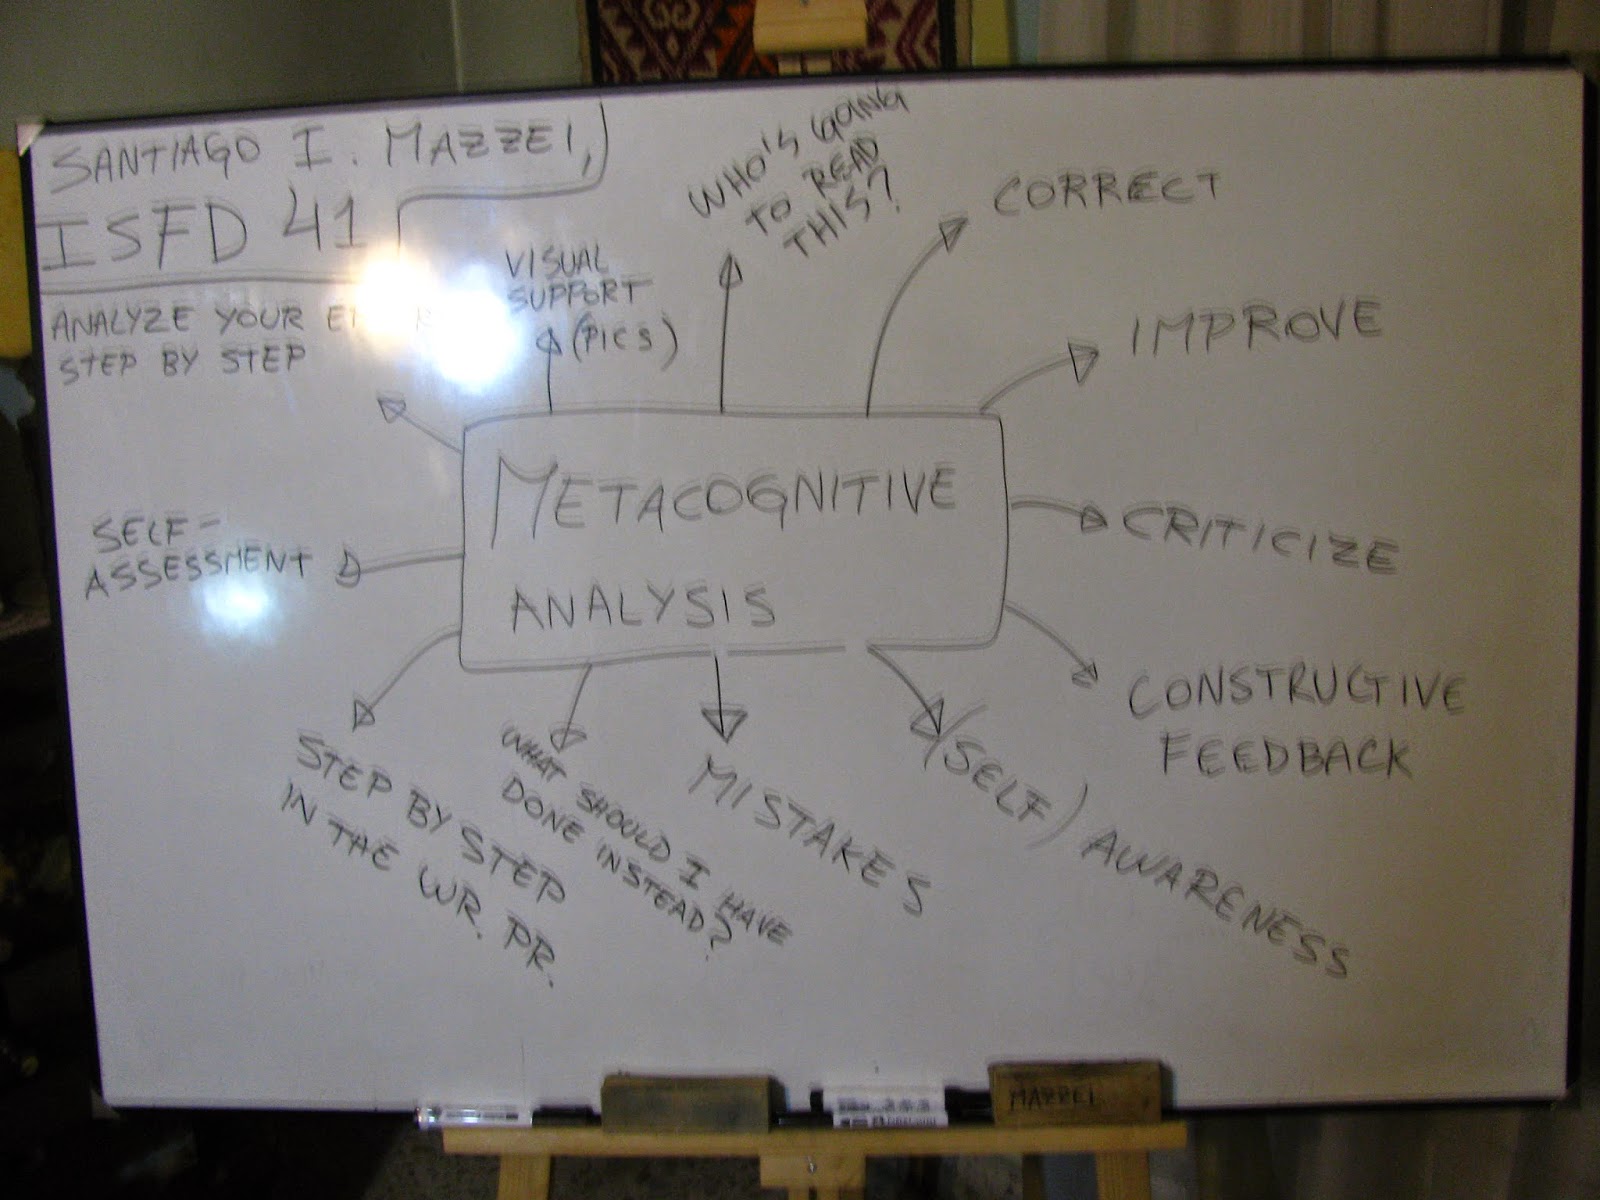 SANTIAGO I. MAZZEI,
ISFD 41
ANALYZE YOUR
STEP BY STEP
VISUAL
SUPPORT
(PICS)
WHO'S GOING
TO READ
THIS?
CORRECT
IMPROVE
CRITICIZE
CONSTRUCTIVE
FEEDBACK
(SELF) AWARENESS
MISTAKES
WHAT SHOULD I HAVE
DONE INSTEAD?
STEP BY STEP
IN THE WR. PR.
SELF-
ASSESSMENT
METACOGNITIVE
ANALYSIS
MAZZEI